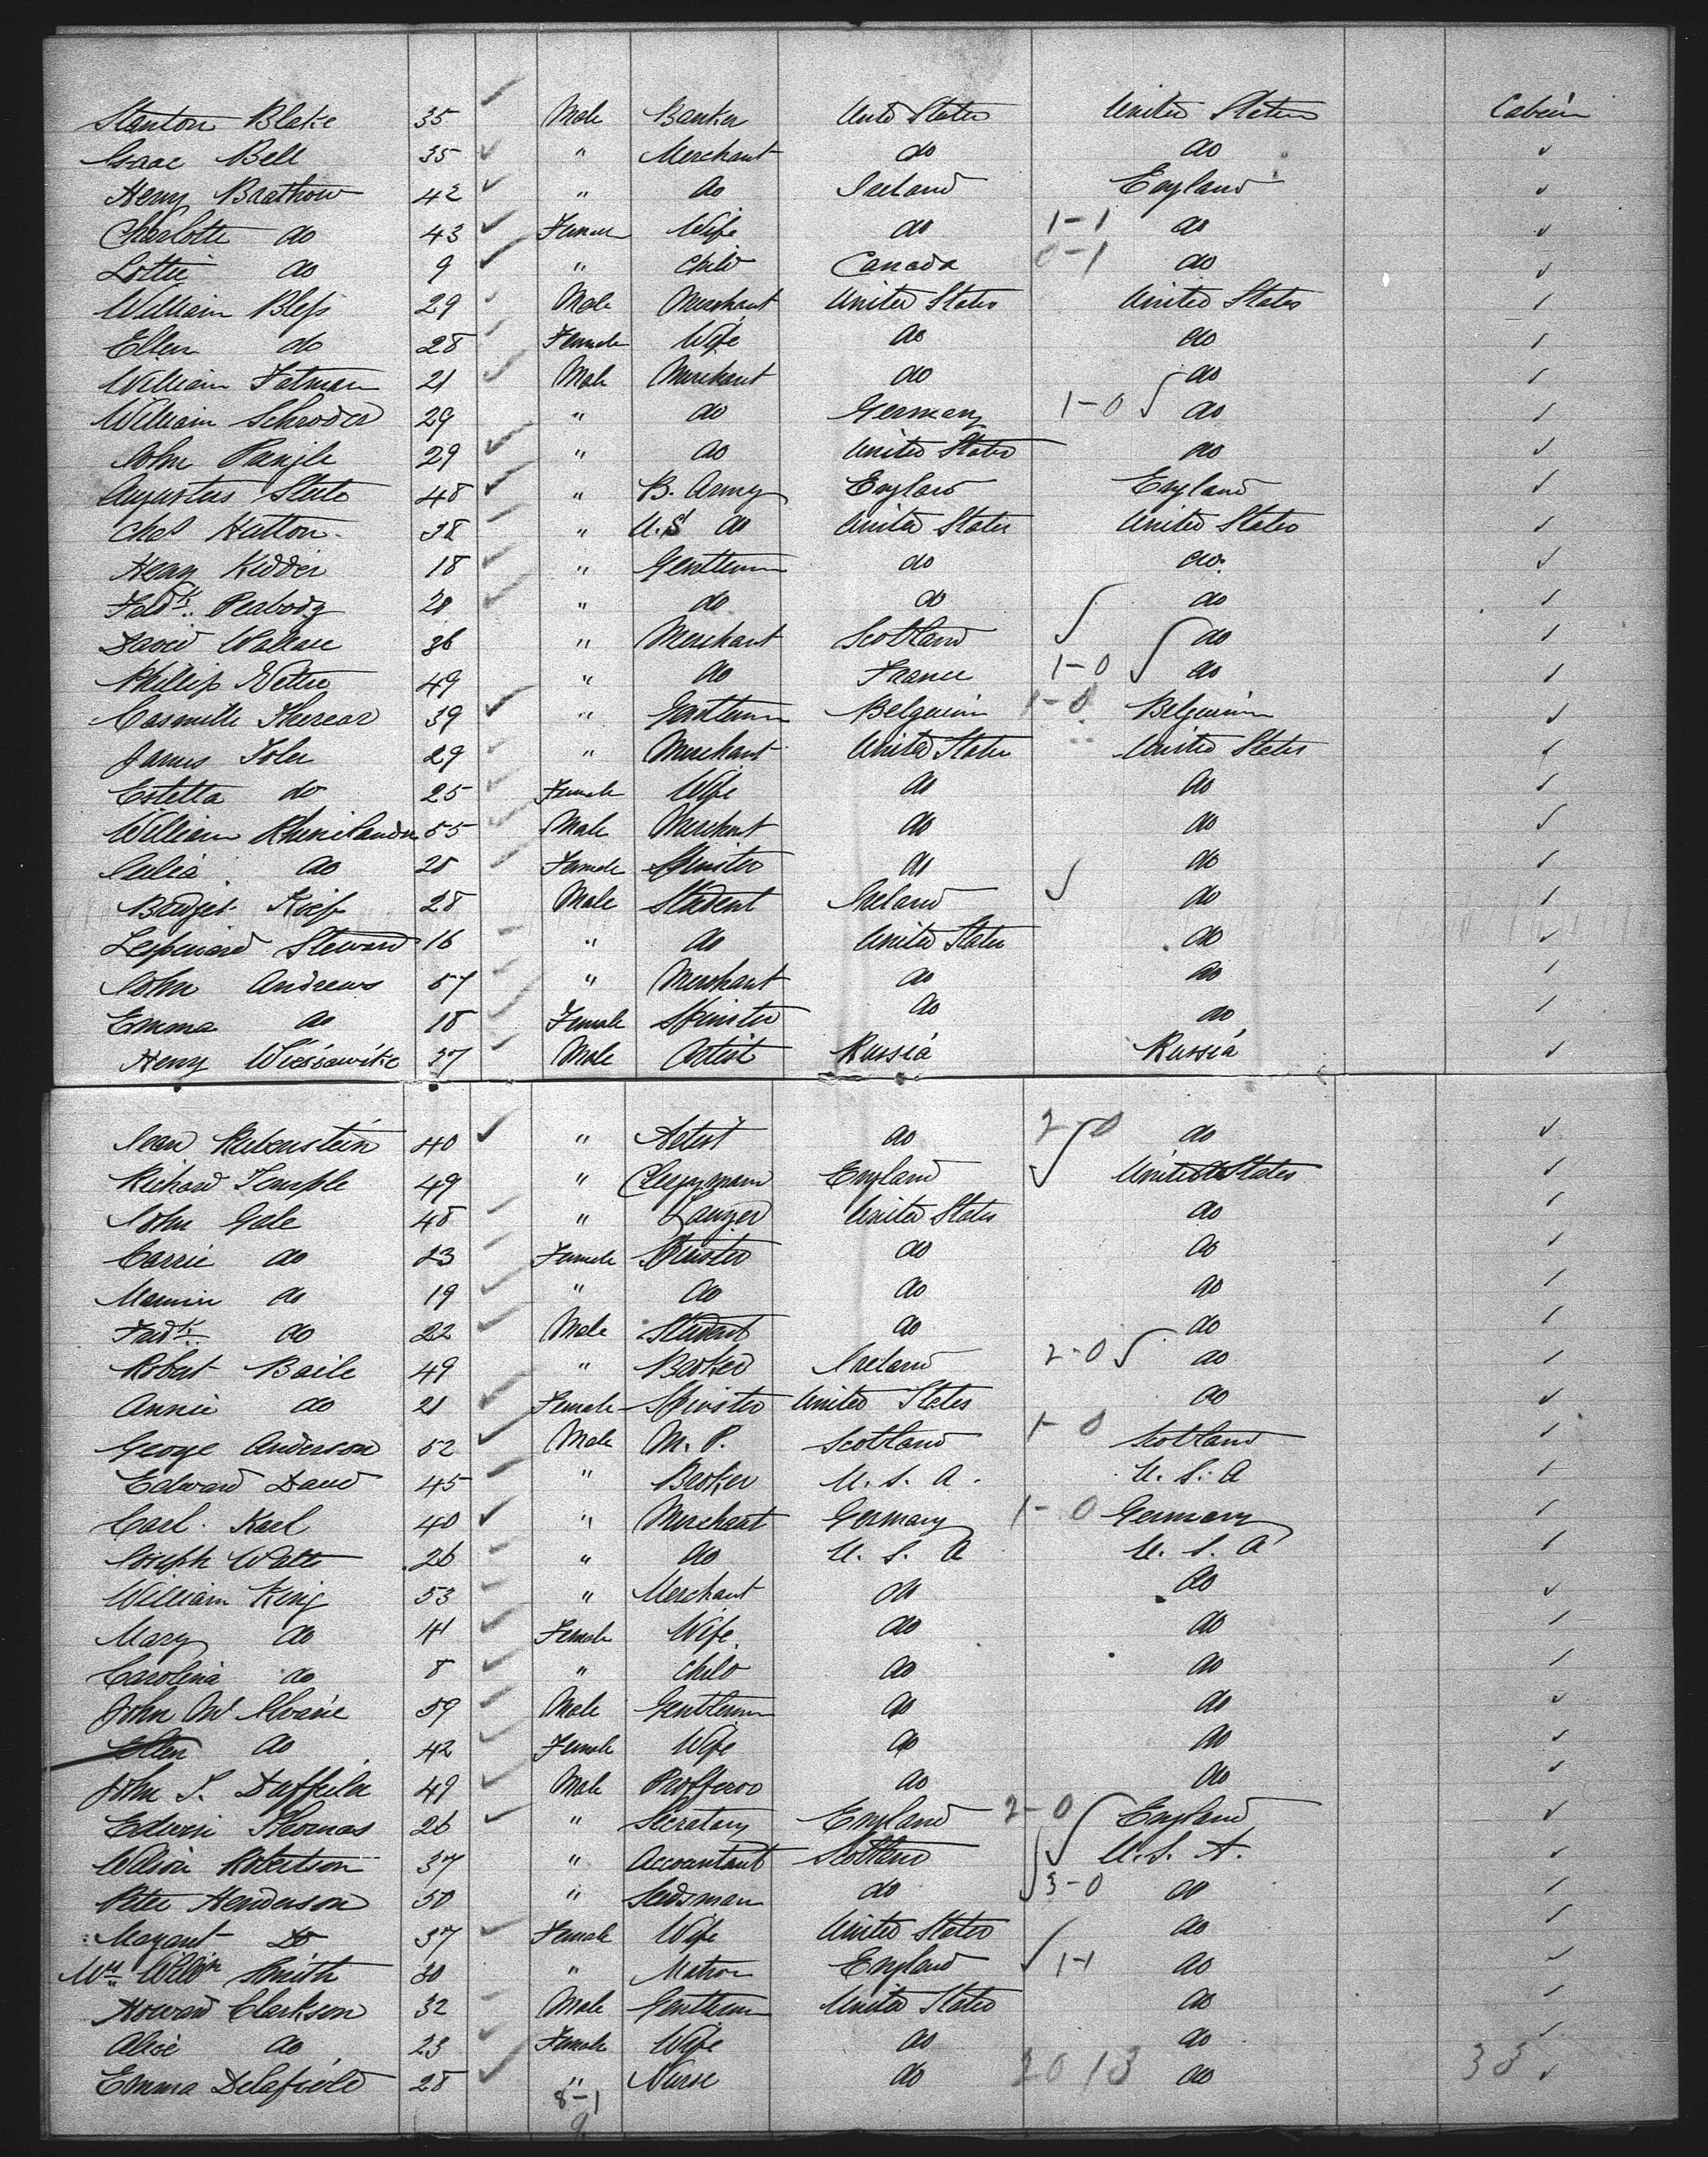 Stanton Blake 35 Male Banker Unit States United States Cabin
Isaac Bell 35 " Merchant do do
Henry 42 " do Ireland England
Charlotte do 43 Female Wife do 1-1 do
Lottie do 9 " Child Canada 0-1 do
William Bless 29 Male Merchant United States United States
Ellen do 28 Female Wife do do
William Fatman 21 Male Merchant do do
William Schroder 29 " do Germany 1-0 do
John 29 " do United States do
Augustus 48 " B. Army England England
Chas Hutton 38 " U.S do United States United States
Henry Kidder 18 " Gentleman do do
Fredk Peabody 28 " do do do
David Wallace 36 " Merchant Scotland do
Phillip 49 " do France 1-0 do
39 " Gentleman Belguim 1-0 Belguim
James Toler 29 " Merchant United States United States
Estella do 25 Female Wife do do
William 55 Male Merchant do do
Julia do 28 Female Spinster do do
Bridget 28 Male Student Ireland do
Steward 16 " do United States do
John Andrews 57 " Merchant do do
Emma do 18 Female Spinster do do
Henry 37 Male Artist Russia Russia
Rubenstein 40 " Artist do 2-0 do
Richard Temple 49 " Clergyman England United States
John Gale 48 " United States do
Carrie do 23 Female Spinster do do
do 19 " do do do
Fredk do 22 Male Student do do
Robert Baile 49 " Broker Ireland 2-0 do
Annie do 21 Female Spinster United States do
George Anderson 52 Male M. P. Scotland 1-0 Scotland
Edward 45 " Broker U. S. A. U. S. A
Carl Karl 40 " Merchant Germany 1-0 Germany
Joseph Watts 26 " do U. S. A U. S. A
William King 53 " Merchant do do
Mary do 41 Female Wife do do
Carolina do 8 " Child do do
John 59 Male Gentleman do do
Ellen do 42 Female Wife do do
John S. 49 Male do do
Edwin Thomas 26 " Secretary England 2-0 England
Robertson 37 " Accountant Scotland U. S. A.
Peter Henderson 50 " Seedsman do 3-0 do
Do 37 Female Wife United States do
Mrs Smith 30 " Matron England 1-1 do
Howard Clarkson 32 Male Gentleman United States do
Alice do 23 Female Wife do do
Emma Delafield 28 " Nurse do 20 13 do 33
8-1
9